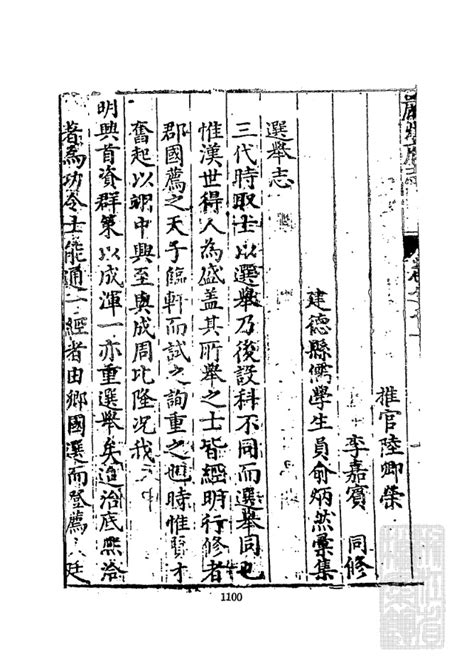 嚴州府志
卷之十一
推官陸卿榮
李嘉賓 同修
建德縣儒學生員俞炳然彙集
選舉志
三代時取士以選舉乃後設科不同而選舉同也
惟漢世得人為盛盖其所舉之士皆經明行修者
郡國薦之天子臨軒而試之詢重之也時惟賢才
奮起以翊中興至與成周比隆況我
明興首資群策以成渾一亦重選舉矣迨治底熙洽
著為功令士能通一經者由鄉國選而登薦
廷
1100